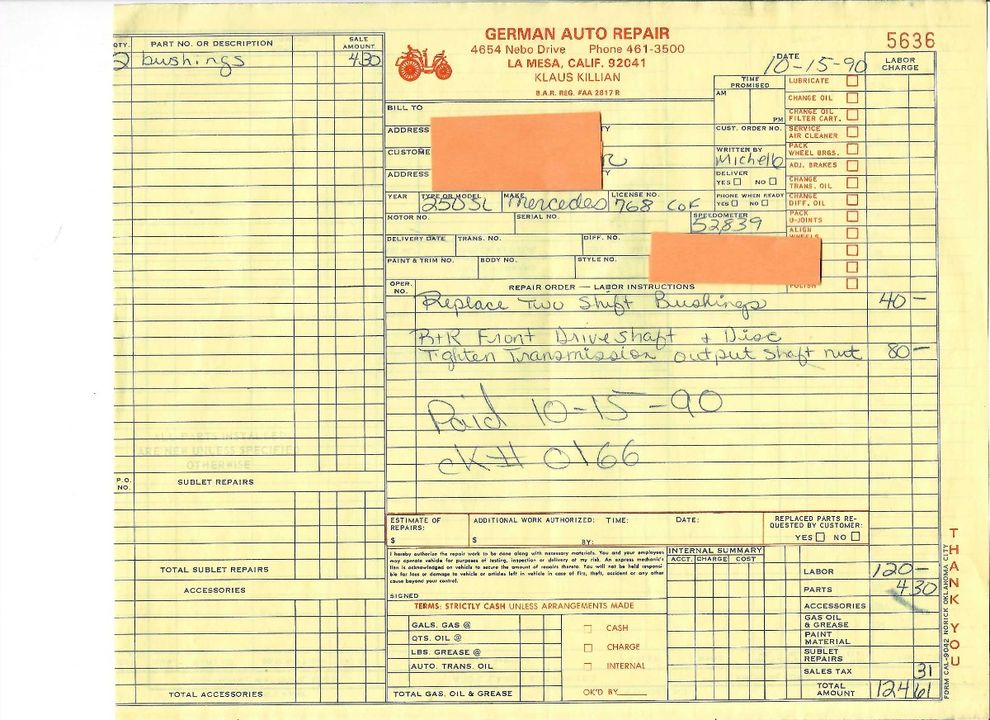 GERMAN AUTO REPAIR
4654 Nebo Drive Phone 461-3500
LA MESA, CALIF. 92041
KLAUS KILLIAN
B.A.R. REG. #AA 2817 R
5636
DATE 10-15-90
LABOR CHARGE
QTY. PART NO. OR DESCRIPTION SALE AMOUNT
2 bushings 4 30
TIME PROMISED
AM
PM
LUBRICATE
CHANGE OIL
CHANGE OIL FILTER CART.
SERVICE AIR CLEANER
PACK WHEEL BRGS.
ADJ. BRAKES
CHANGE TRANS. OIL
CHANGE DIFF. OIL
PACK U-JOINTS
ALIGN WHEELS
POLISH
BILL TO
ADDRESS
CUSTOME
ADDRESS
CUST. ORDER NO.
WRITTEN BY
DELIVER
YES NO
PHONE WHEN READY
YES NO
YEAR TYPE OR MODEL MAKE LICENSE NO.
250SL Mercedes 768 COF
MOTOR NO. SERIAL NO. SPEEDOMETER
52839
DELIVERY DATE TRANS. NO. DIFF. NO.
PAINT & TRIM NO. BODY NO. STYLE NO.
OPER. NO. REPAIR ORDER — LABOR INSTRUCTIONS
Replace Two Shift Bushings 40 —
R+R Front Driveshaft + Disc
Tighten Transmission output shaft nut 80 —
Paid 10-15-90
CK# 0166
ALL PARTS INSTALLED
ARE NEW UNLESS SPECIFIED
OTHERWISE
P.O. NO. SUBLET REPAIRS
TOTAL SUBLET REPAIRS
ACCESSORIES
TOTAL ACCESSORIES
ESTIMATE OF REPAIRS: $
ADDITIONAL WORK AUTHORIZED: TIME: DATE:
$ BY:
REPLACED PARTS REQUESTED BY CUSTOMER:
YES NO
I hereby authorize the repair work to be done along with necessary materials. You and your employees
may operate vehicle for purposes of testing, inspection or delivery at my risk. An express mechanic's
lien is acknowledged on vehicle to secure the amount of repairs thereto. You will not be held responsi-
ble for loss or damage to vehicle or articles left in vehicle in case of fire, theft, accident or any other
cause beyond your control.
SIGNED
TERMS: STRICTLY CASH UNLESS ARRANGEMENTS MADE
INTERNAL SUMMARY
ACCT. CHARGE COST
GALS. GAS @
QTS. OIL @
LBS. GREASE @
AUTO. TRANS. OIL
TOTAL GAS, OIL & GREASE
CASH
CHARGE
INTERNAL
OK'D BY
LABOR 120 —
PARTS 4 30
ACCESSORIES
GAS OIL & GREASE
PAINT MATERIAL
SUBLET REPAIRS
SALES TAX 31
TOTAL AMOUNT 124 61
THANK YOU
FORM CAL-9042 NORICK OKLAHOMA CITY